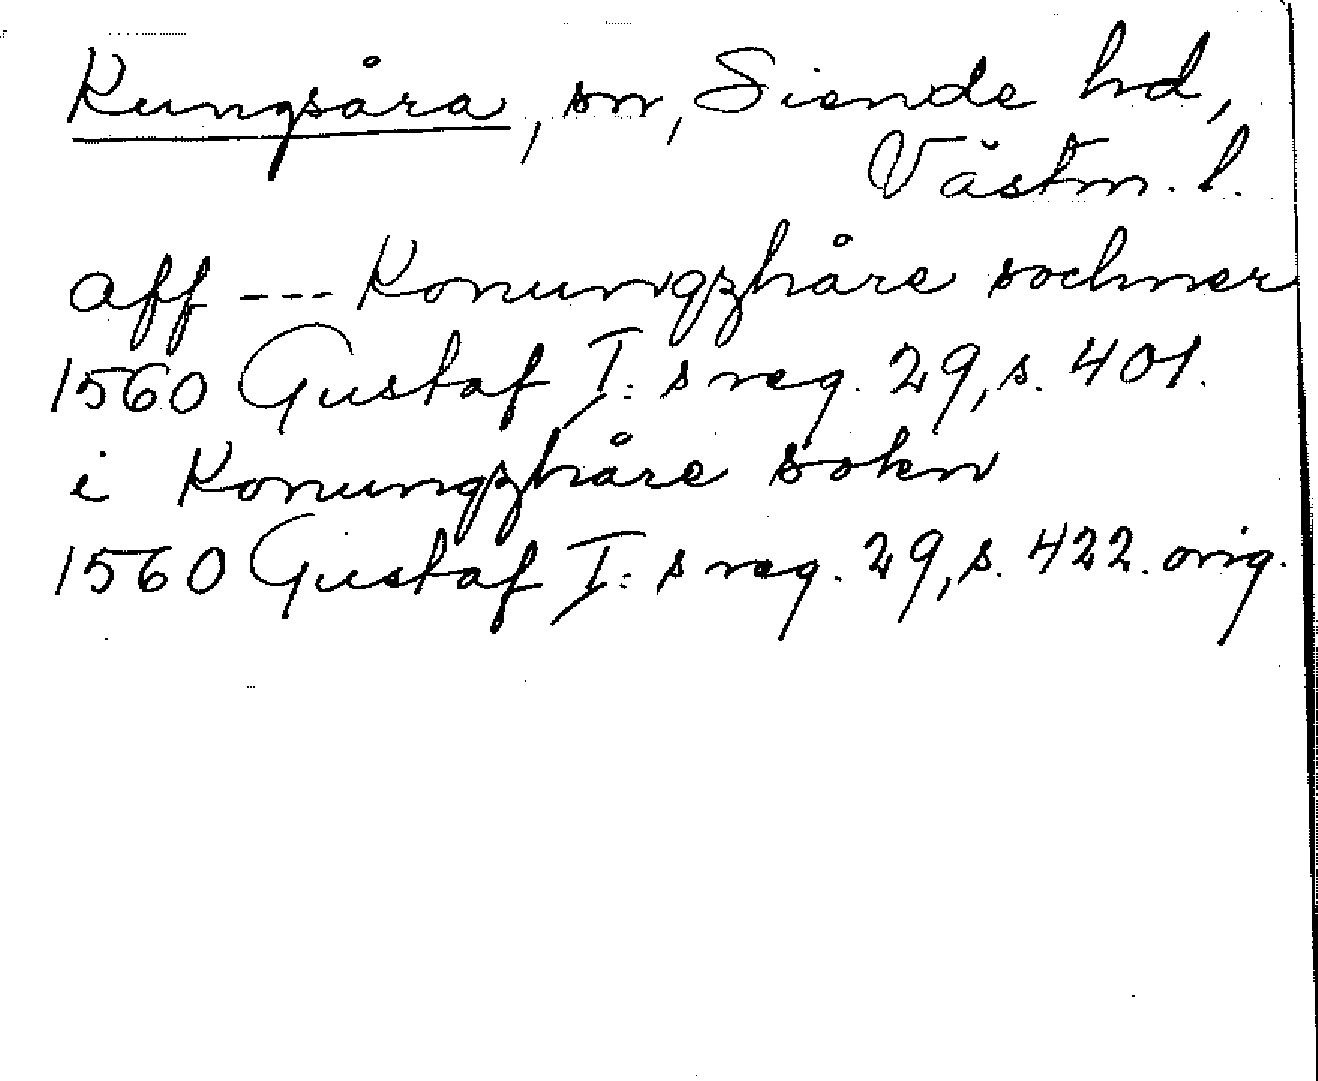 Kungsåra, sn, Siende hd,
Västm. l.
aff --- Konungzhåre sochner
1560 Gustaf I:s reg. 29, s. 401.
i Konungzhåre sokn
1560 Gustaf I:s reg. 29, s. 422. orig.